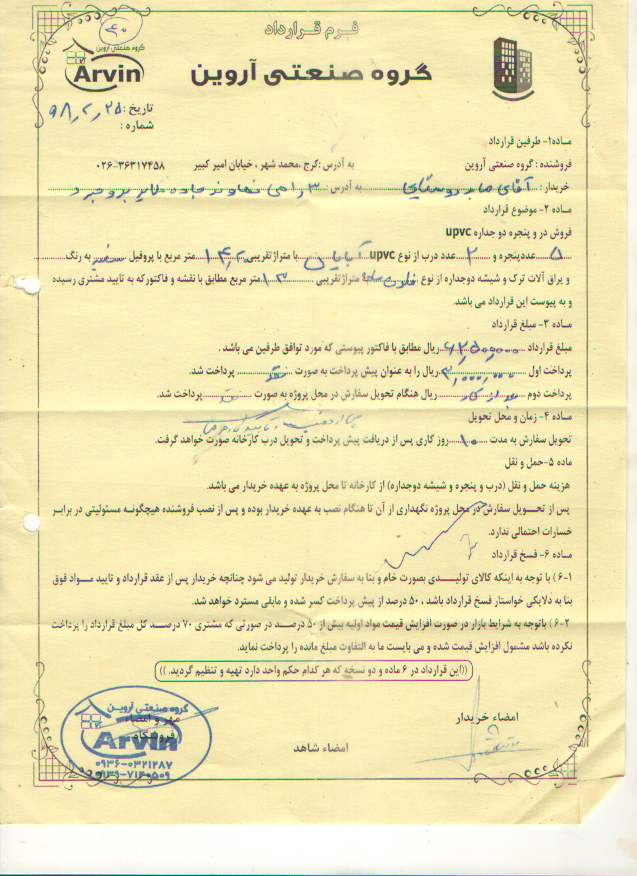 فرم قرارداد
۴۰
گروه صنعتی آروین
Arvin
گروه صنعتی آروین
تاریخ: ۹۸,۲,۲۵
شماره:
ماده۱- طرفین قرارداد
فروشنده: گروه صنعتی آروین به آدرس: کرج، محمد شهر، خیابان امیر کبیر ۰۲۶-۳۶۳۱۷۴۵۸
خریدار: آقای صابر روستایی به آدرس: ۳ راهی نهاوند جاده ملایر بروجرد
ماده ۲- موضوع قرارداد
فروش در و پنجره دو جداره upvc
۵ عددپنجره و ۲ عدد درب از نوع upvc آبایان با متراژ تقریبی ۱۴,۲ متر مربع با پروفیل سفید به رنگ
و یراق آلات ترک و شیشه دوجداره از نوع متراژ تقریبی ۱۳ متر مربع مطابق با نقشه و فاکتور که به تایید مشتری رسیده
و به پیوست این قرارداد می باشد.
ماده ۳- مبلغ قرارداد
مبلغ قرارداد ریال مطابق با فاکتور پیوستی که مورد توافق طرفین می باشد.
پرداخت اول ۳۰,۰۰۰,۰۰۰ ریال را به عنوان پیش پرداخت به صورت نقد پرداخت شد.
پرداخت دوم ریال هنگام تحویل سفارش در محل پروژه به صورت نقد پرداخت شد.
ماده ۴- زمان و محل تحویل
تحویل سفارش به مدت ۱۰ روز کاری پس از دریافت پیش پرداخت و تحویل درب کارخانه صورت خواهد گرفت.
ماده ۵-حمل و نقل
هزینه حمل و نقل (درب و پنجره و شیشه دوجداره) از کارخانه تا محل پروژه به عهده خریدار می باشد.
پس از تحویل سفارش در محل پروژه نگهداری از آن تا هنگام نصب به عهده خریدار بوده و پس از نصب فروشنده هیچگونه مسئولیتی در برابر
خسارات احتمالی ندارد.
ماده ۶- فسخ قرارداد
۱-۶) با توجه به اینکه کالای تولیدی بصورت خام و بنا به سفارش خریدار تولید می شود چنانچه خریدار پس از عقد قرارداد و تایید مواد فوق
بنا به دلایکی خواستار فسخ قرارداد باشد ، ۵۰ درصد از پیش پرداخت کسر شده و مابقی مسترد خواهد شد.
۲-۶) باتوجه به شرایط بازار در صورت افزایش قیمت مواد اولیه بیش از ۵۰ درصد در صورتی که مشتری ۷۰ درصد کل مبلغ قرارداد را پرداخت
نکرده باشد مشمول افزایش قیمت شده و می بایست ما به التفاوت مبلغ مانده را پرداخت نماید.
((این قرارداد در ۶ ماده و دو نسخه که هر کدام حکم واحد دارد تهیه و تنظیم گردید.))
امضاء خریدار
امضاء شاهد
مهر و امضاء
فروشگاه
گروه صنعتی آروین
Arvin
۰۹۳۶-۰۳۲۱۲۸۷
۰۹۳۹-۷۱۴۰۵۰۹